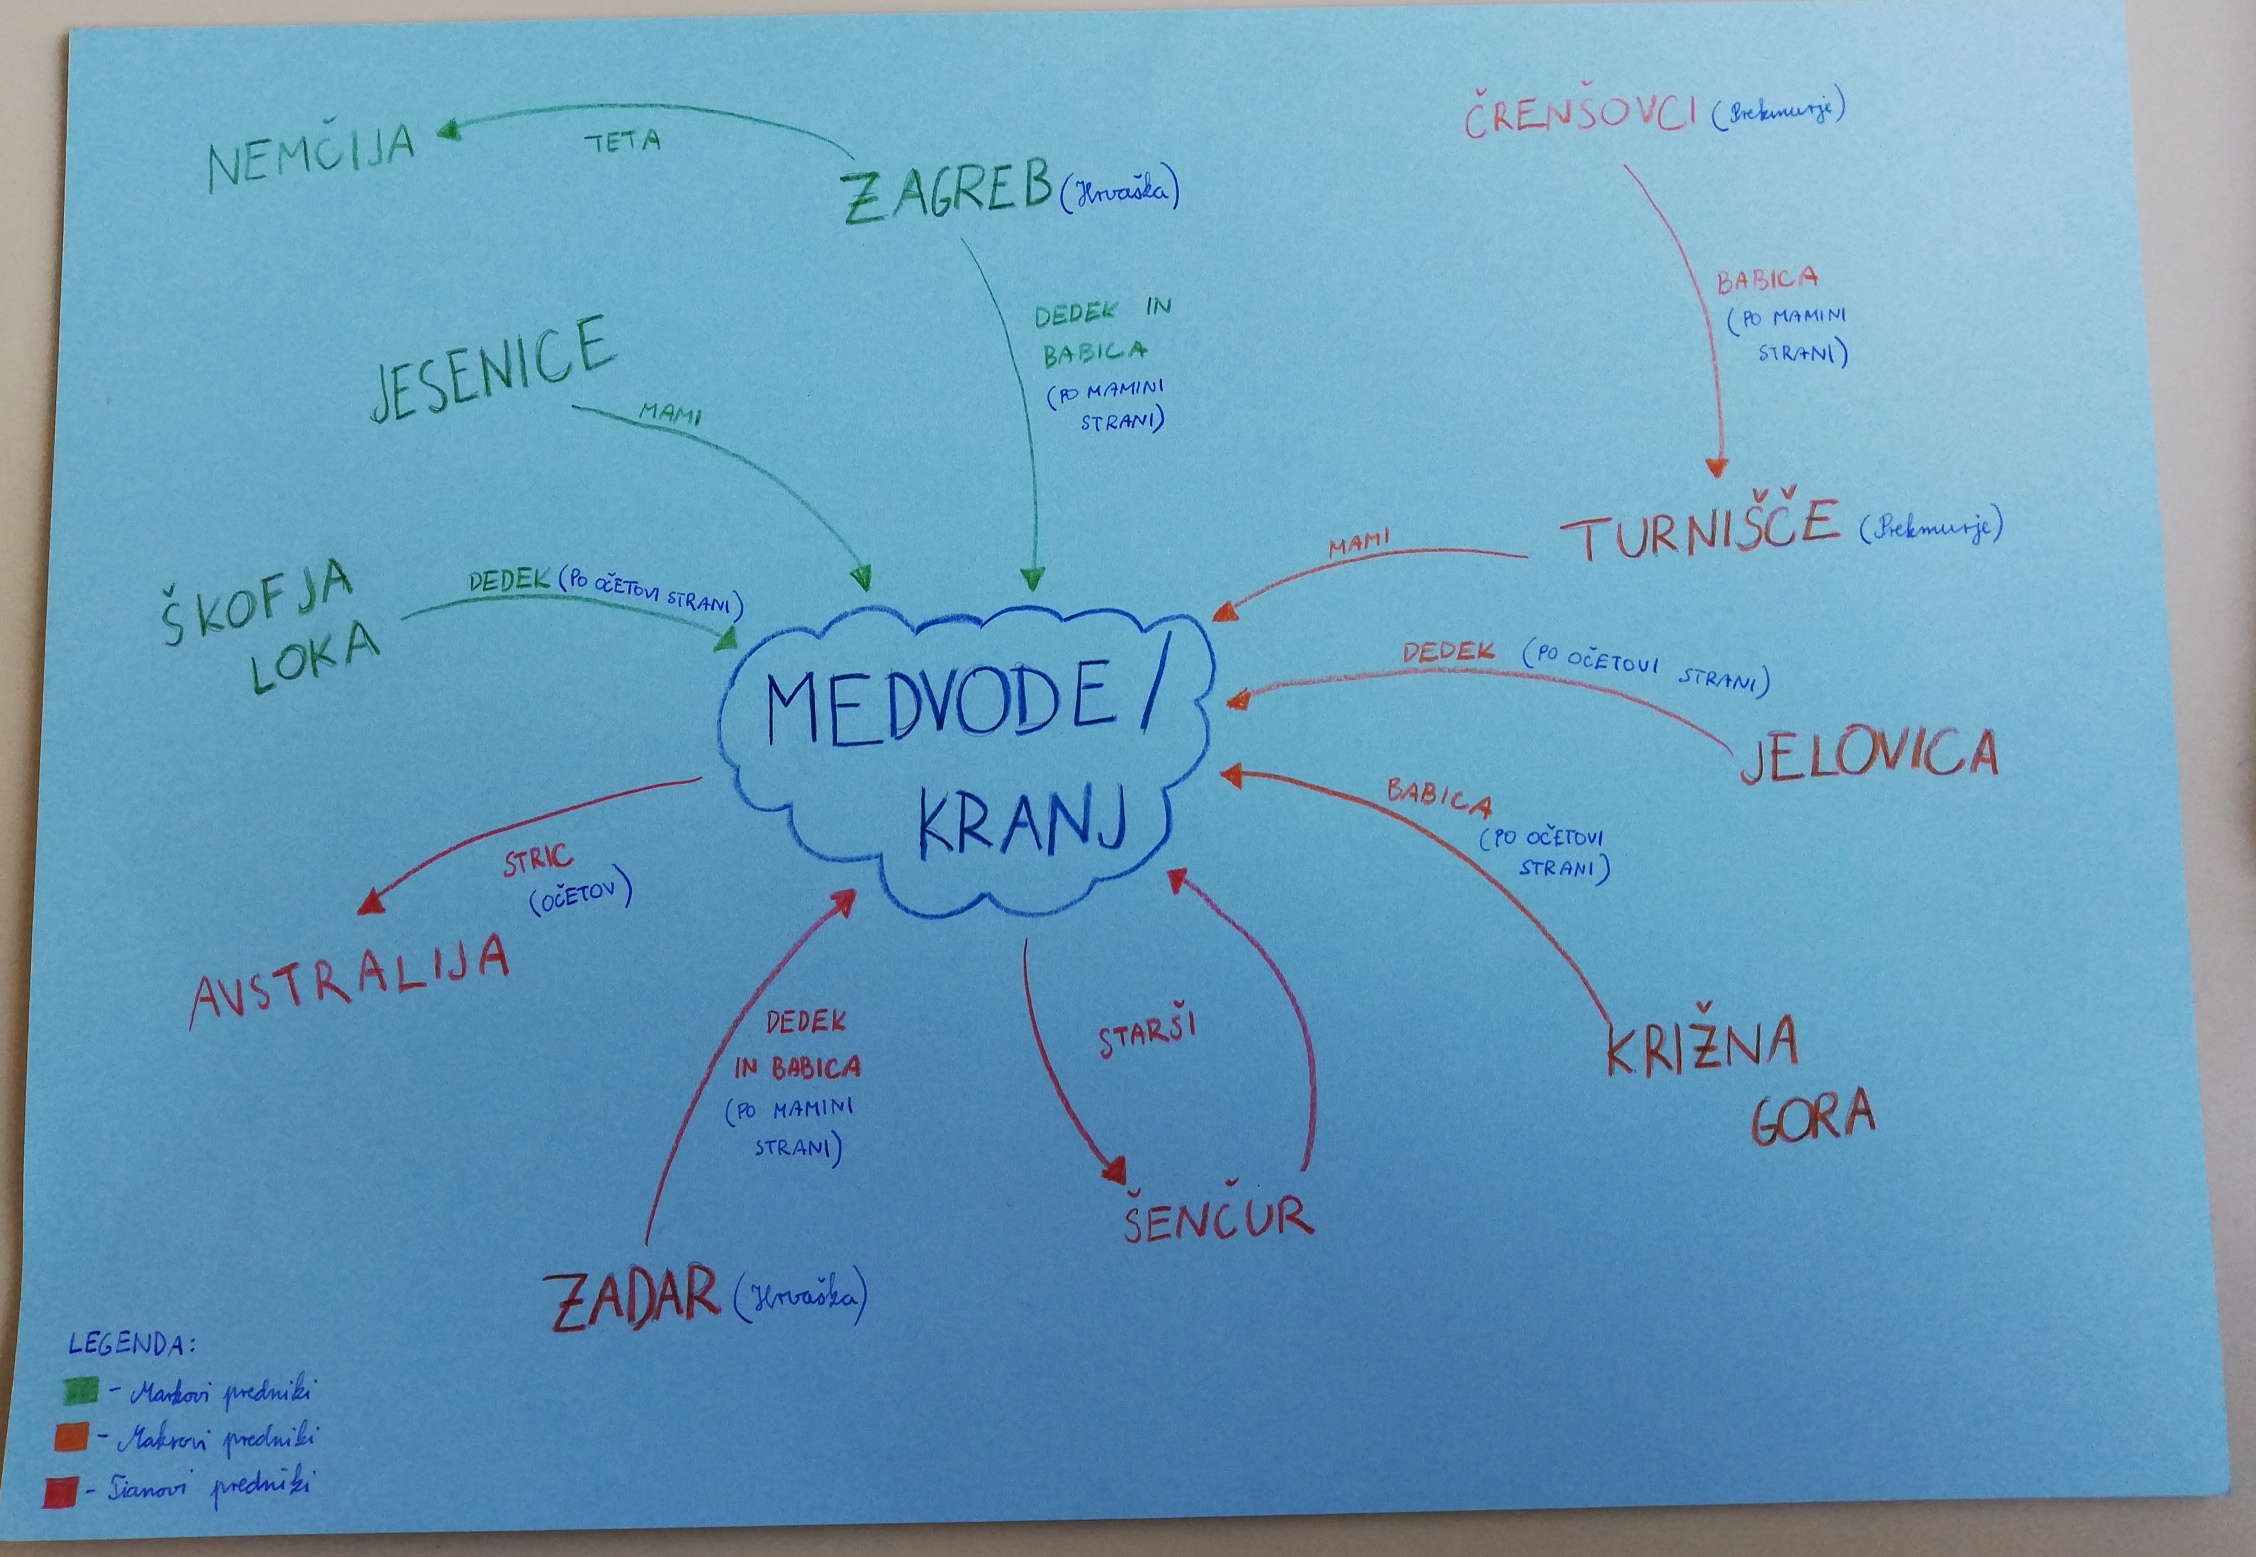 NEMČIJA
TETA
ZAGREB (Hrvaška)
ČRENŠOVCI (Prekmurje)
DEDEK IN
BABICA
(PO MAMINI
STRANI)
BABICA
(PO MAMINI
STRANI)
JESENICE
MAMI
TURNIŠČE (Prekmurje)
MAMI
ŠKOFJA
LOKA
DEDEK (PO OČETOVI STRANI)
MEDVODE /
KRANJ
DEDEK (PO OČETOVI STRANI)
JELOVICA
BABICA
(PO OČETOVI
STRANI)
KRIŽNA
GORA
STRIC
(OČETOV)
AVSTRALIJA
DEDEK
IN BABICA
(PO MAMINI
STRANI)
STARŠI
ŠENČUR
ZADAR (Hrvaška)
LEGENDA:
- Markovi predniki
- Maksovi predniki
- Tianovi predniki